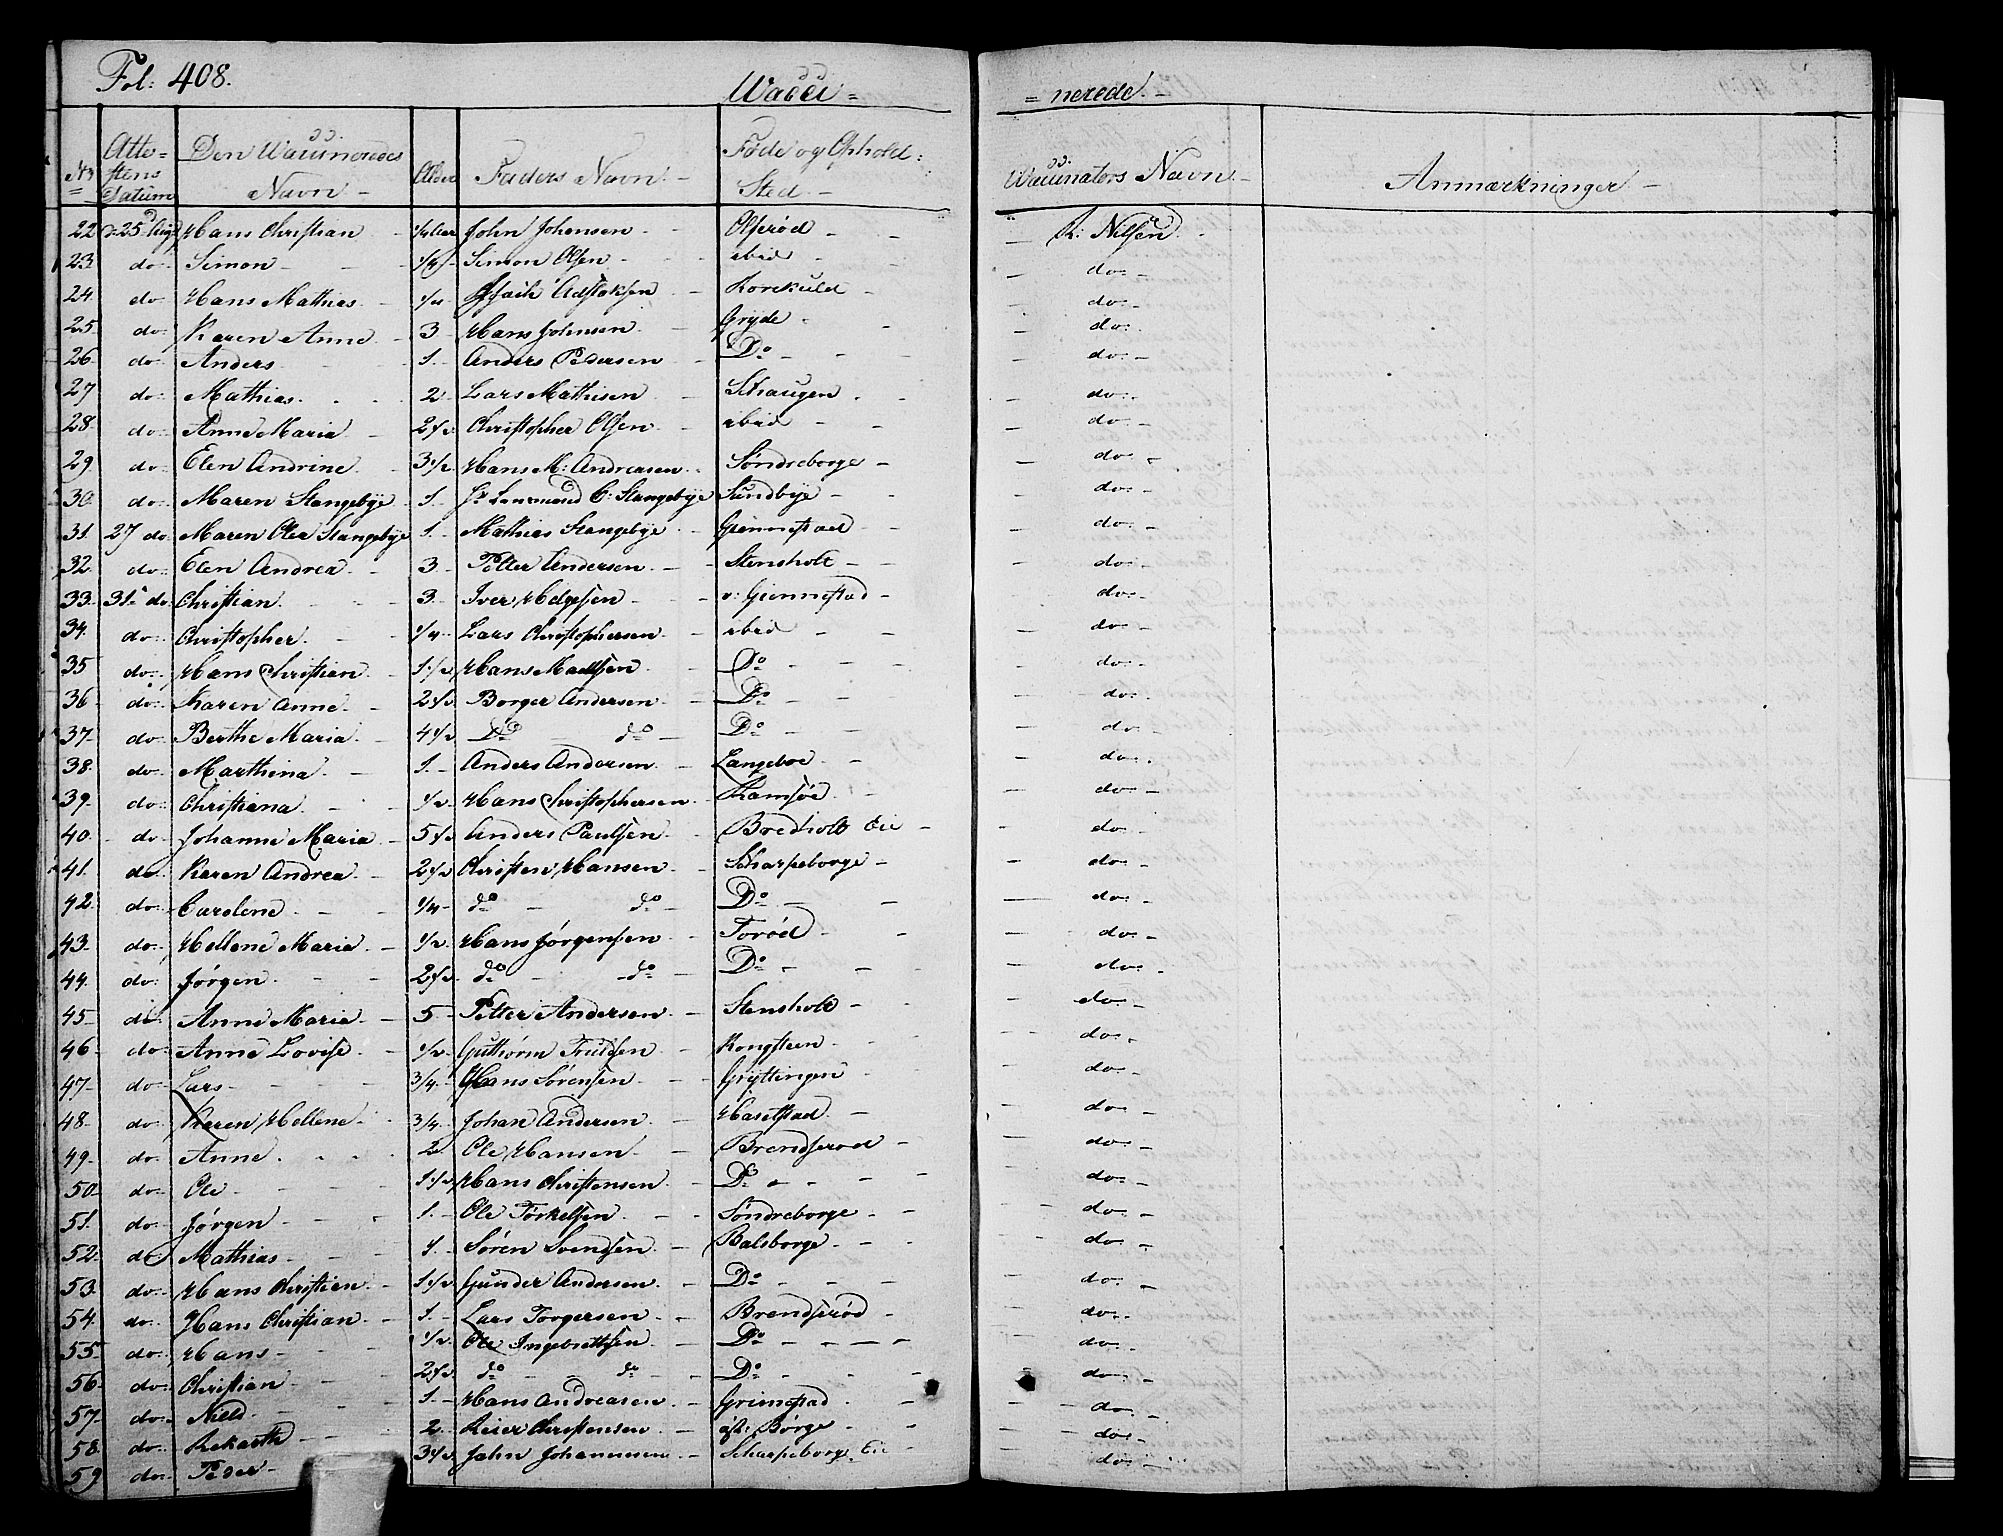 Fol: 408.
Wacci= =nerede.-
No Atte=stens Datum Den Waccineredes Navn - Alder Faders Navn - Føde og Ophold: Sted - Vaccinators Navn - Anmærkninger -
22 d. 25d Aug Hans Christian 1/4 Aar John Johensen Olsrød - R: Nilsen
23 do Simon 1/4 Simon Olsen ibid - do
24. do Hans Mathias 1/4 Adstoksen - do
25 do Karen Anne 3 Hans Johnsen Gryde - do
26 do Anders 1. Anders Pedersen Do - do
27 do Mathias 2 Lars Mathisen Schaugen - do
28. do Anne Maria 2 1/2 Christopher Olsen ibid - do
29 do Elen Andrine 3 1/2 Hans M: Andreasen Søndreborge - do
30. do Maren Stangebye 1. Hr Lensmand C: Stangebye Sundbye - do
31. 27 do Maren Olea Stangebye 1. Mathias Stangebye Grimestad - do
32. do Elen Andrea 3 Petter Andersen Stensholt - do
33. 31te do Christian 3. Iver Helgesen v: Grimestad - do
34. do Christopher 1/4 Lars Christophersen ibid - do
35 do Hans Christian 1 1/2 Hans Madtsen Do - do
36 do Karen Anne 2 1/2 Borger Andersen Do - do
37 do Berthe Maria 4 1/2 Do do Do - do
38. do Marthina 1. Anders Andersen Langeboe - do
39 do Christiana 1/2 Hans Christophersen Ramsøe - do
40. do Johanne Maria 5 1/2 Anders Paulsen Bredholt Eie - do
41. do Karen Andrea 2 1/2 Christen Hansen Scharpeborge - do
42. do Carolene 1/4 do do Do - do
43. do Hellene Maria 1/2 Hans Jørgensen Torød - do
44. do Jørgen 2 1/2 do do Do - do
45 do Anne Maria 5 Petter Andersen Stensholt - do
46 do Anne Lovise 1/2 Guthorm Trulsen Kongsteen - do
47 do Lars 3/4 Hans Sørensen Gryttingen - do
48 do Karen Hellene 3/4 Johan Andersen Hasetstad - do
49 do Anne 2 Ole Hansen Brendserød - do
50 do Ole 1 1/2 Hans Christensen Do - do
51. do Jørgen 1. Ole Torkelsen Søndreborge - do
52. do Mathias 1 Søren Svendsen Balsborge - do
53 do Hans Christian 1 1/2 Gunder Andersen Do - do
54. do Hans Christian 1. Lars Torgersen Brendserød - do
55 do Hans 1/2 Ole Ingebrethsen Do - do
56. do Christian 2 1/2 do do Do - do
57 do Niels 1. Hans Andreasen Grimestad - do
58. do 2. Reier Christensen øst: Børge - do
59 do Peder 3 1/2 Jahn Johannesen Scharpeborge Eie - do